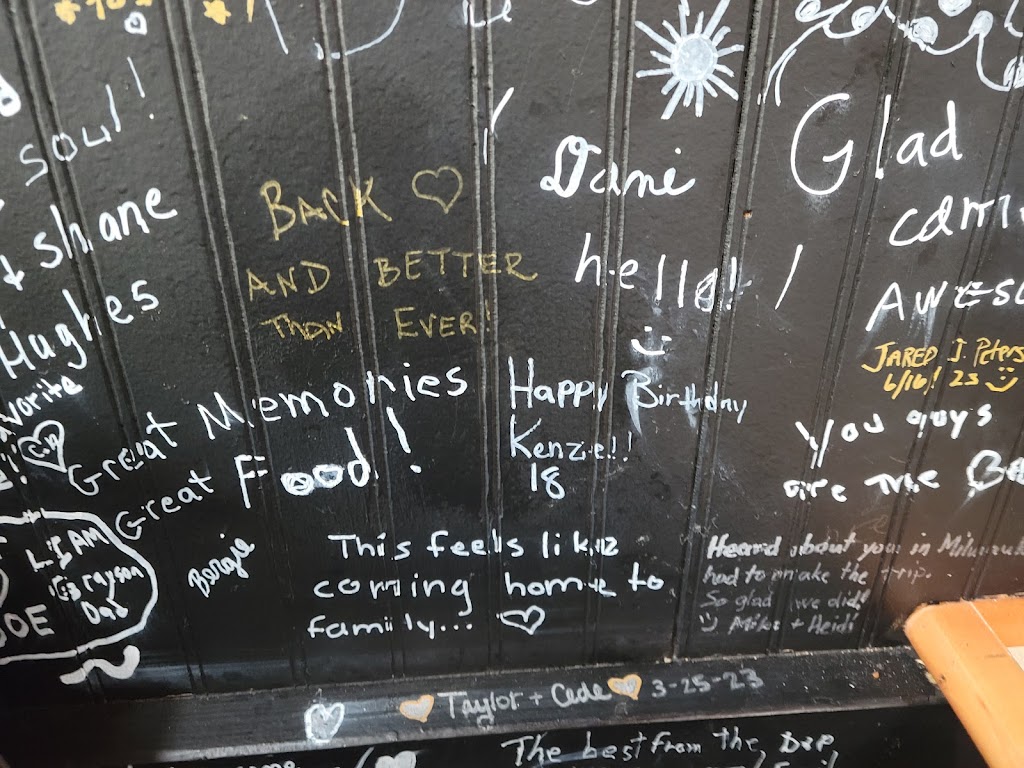 Soul!
+ Shane
Hughes
BACK
AND BETTER
THAN EVER!
Dani
hello!
Glad
AWESO
JARED J. Peters
6/16/23
Great Memories
Great Food!
Happy Birthday
Kenzie!!
18
You guys
are the
LIAM
Grayson
Dad
This feels like
coming home to
family...
Heard about you in Milwauk
had to make the trip.
So glad we did!
Mike + Heidi
Taylor + Cade 3-25-23
The best from the Dep